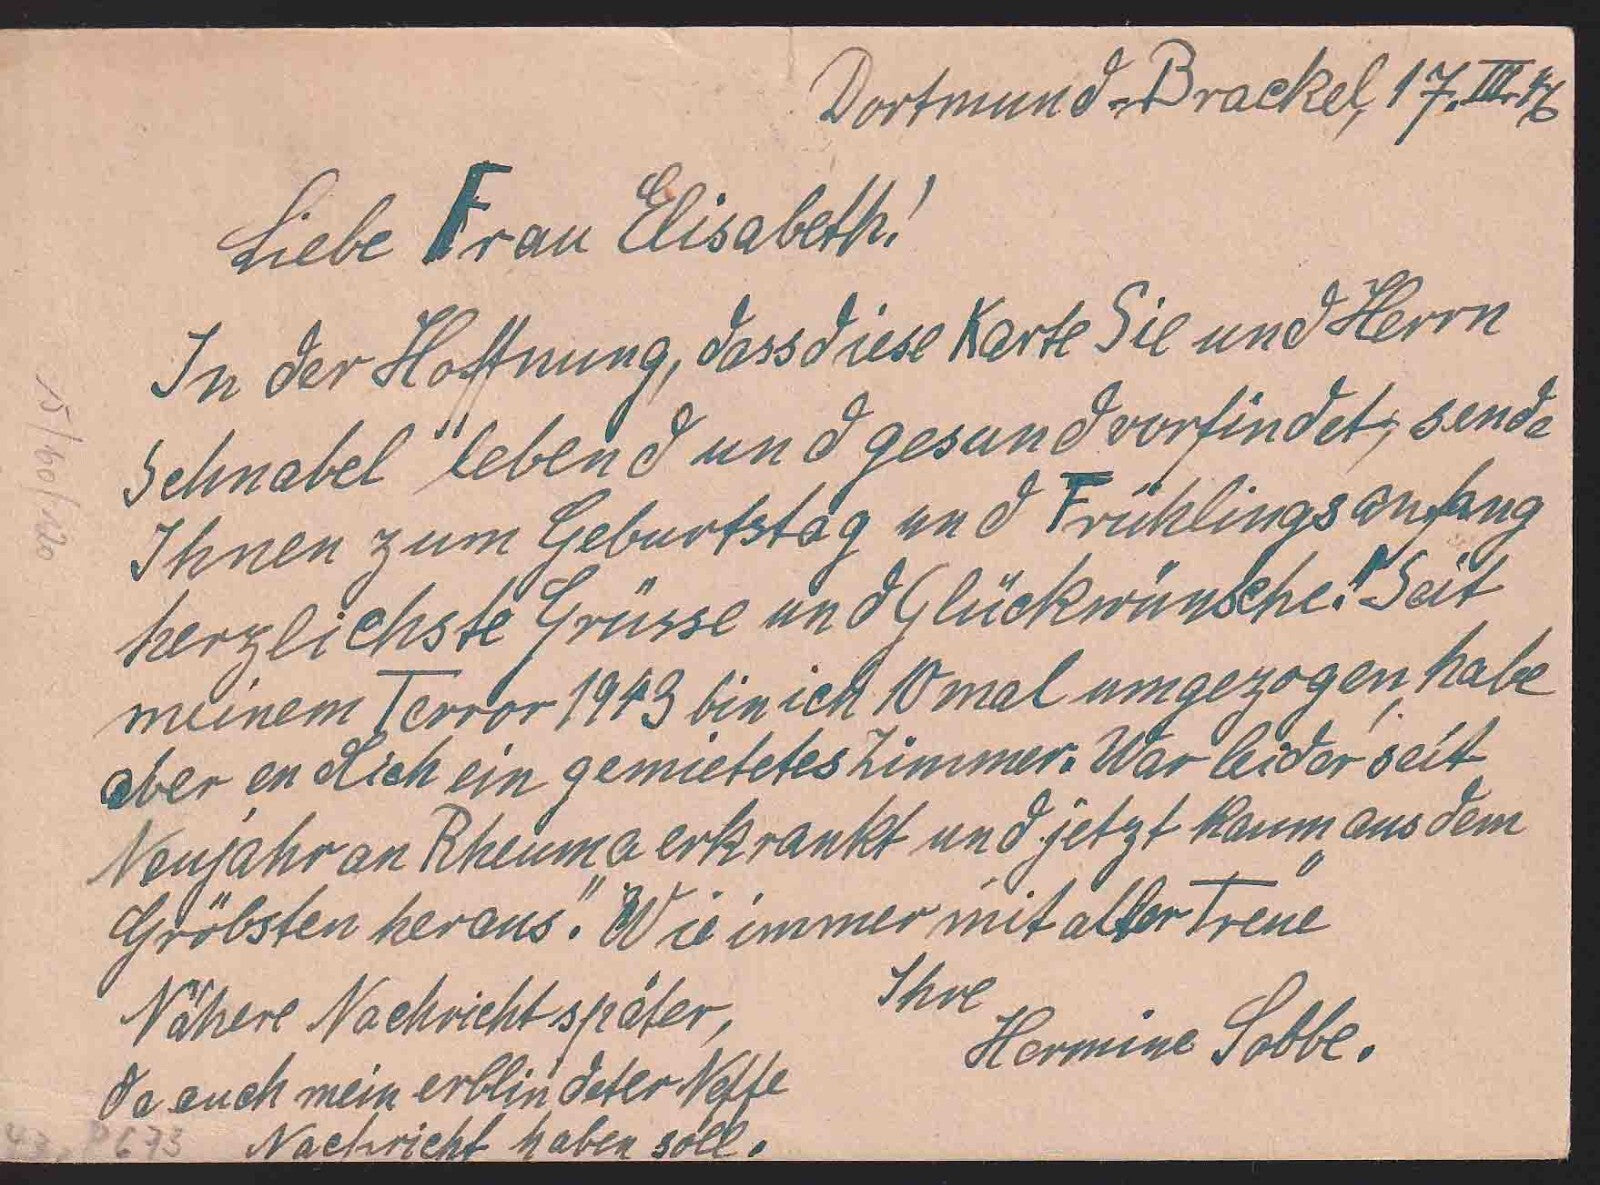 Dortmund-Brackel, 17. III. 46
Liebe Frau Elisabeth!
In der Hoffnung, dass diese Karte Sie und Herrn
Schnabel lebend und gesund vorfindet, sende
Ihnen zum Geburtstag und Frühlingsanfang
herzlichste Grüsse und Glückwünsche! Seit
meinem Terror 1943 bin ich 10 mal umgezogen, habe
aber endlich ein gemietetes Zimmer. War leider seit
Neujahr an Rheuma erkrankt und jetzt kaum aus dem
Gröbsten heraus". Wie immer mit alter Treue
Ihre
Hermine Sobbe.
Nähere Nachricht später,
da auch mein erblindeter Neffe
Nachricht haben soll.
15/60/120
P 673